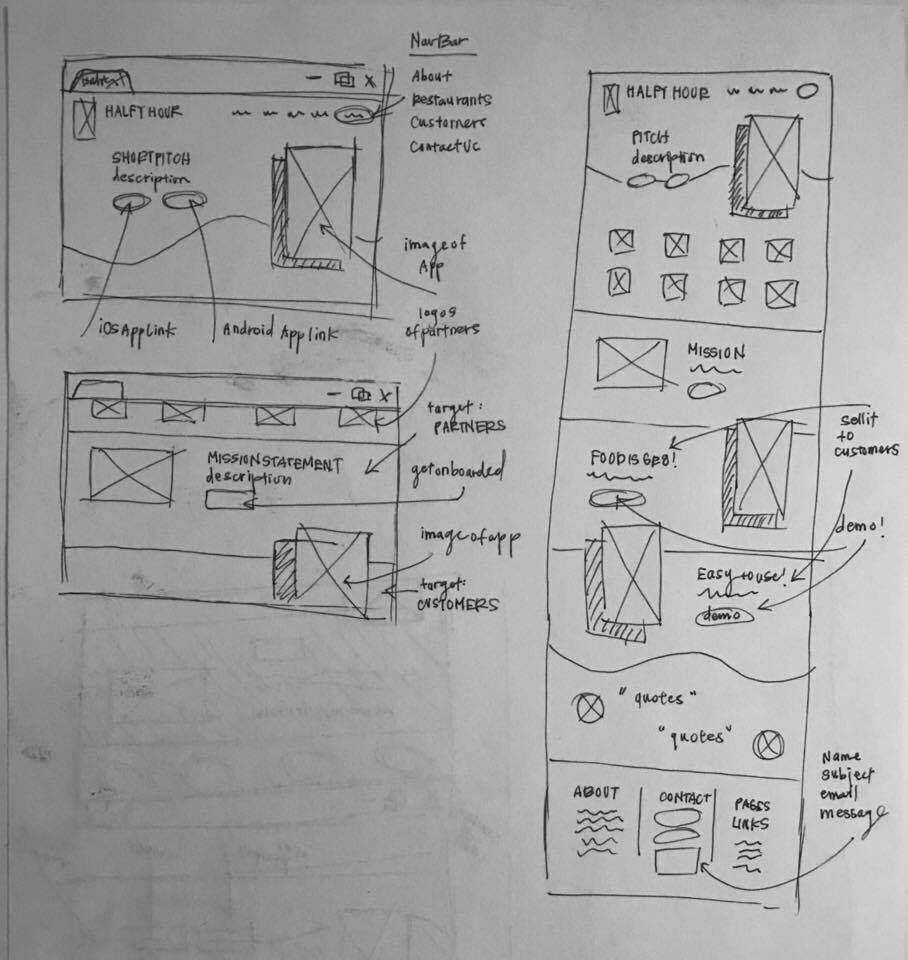 NavBar
About
Restaurants
Customers
Contact Us
HALFY HOUR
SHORT PITCH
description
image of
App
iOS App link
Android App link
logos
of partners
target:
PARTNERS
MISSION STATEMENT
description
get onboarded
image of app
target:
CUSTOMERS
HALFY HOUR
PITCH
description
MISSION
sell it
to
customers
FOOD IS
demo!
Easy to use!
demo
"quotes"
"quotes"
Name
subject
email
message
ABOUT
CONTACT
PAGES
LINKS